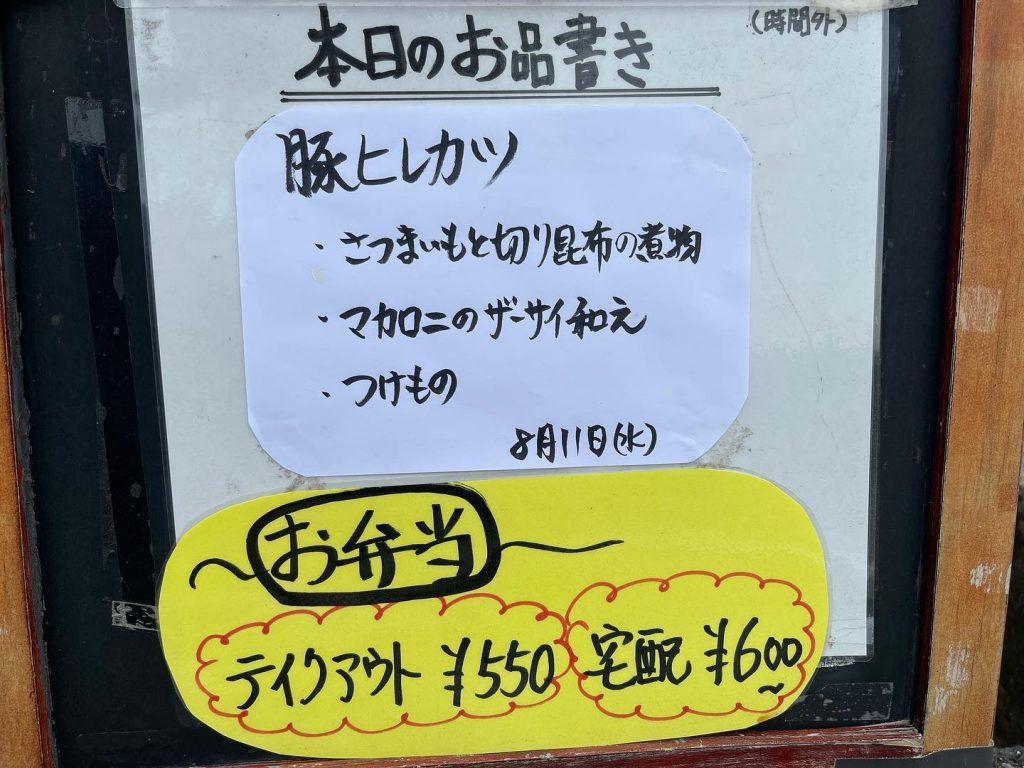 (時間外)
本日のお品書き
豚ヒレカツ
・さつまいもと切り昆布の煮物
・マカロニのザーサイ和え
・つけもの
8月11日(水)
お弁当
テイクアウト ¥550
宅配 ¥600~